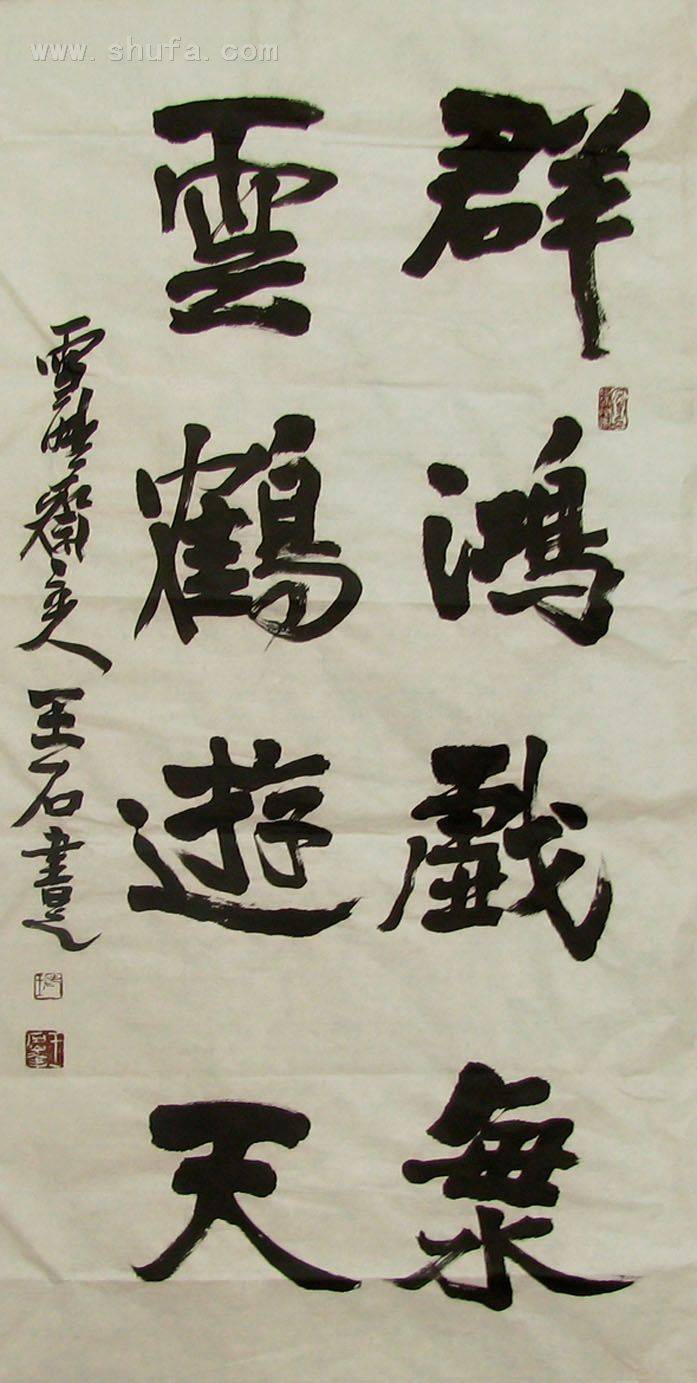 www.shufa.com
群鴻戲海
雲鶴遊天
雪齋主人王石書